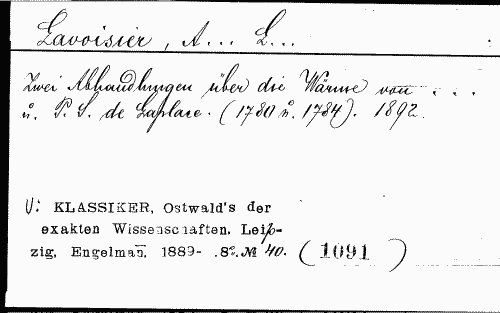 Lavoisier, A... L... :
Zwei Abhandlungen über die Wärme von . . .
u. P. S. de Laplace. (1780 u. 1784). 1892.
V: KLASSIKER, Ostwald's der
exakten Wissenschaften. Leip-
zig, Engelman̅, 1889- .8º.№ 40. (1091)